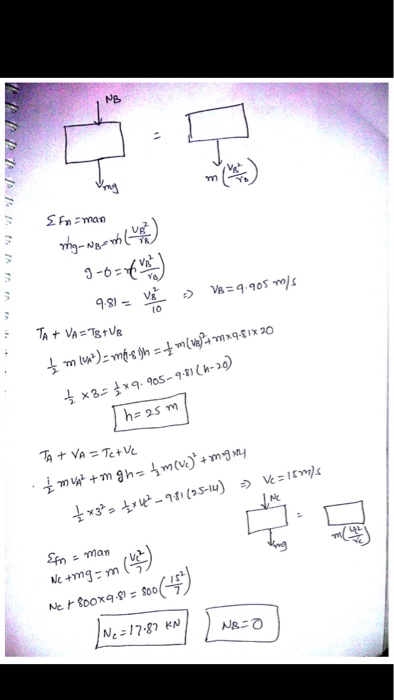 NB
=
mg
m(VB²/rB)
ΣFn = man
mg - NB = m(VB²/rB)
g - 0 = (VB²/rB)
9.81 = VB²/10 ⇒ VB = 9.905 m/s
TA + VA = TB + VB
½ m(VA²) = m(9.81)h = ½ m(VB)² + m×9.81×20
½ × 3 = ½ × 9.905 - 9.81(h-20)
h = 25 m
TA + VA = TC + VC
½ mVA² + mgh = ½ m(VC)² + mg
½ × 3² = ½ × VC² - 9.81(25-14) ⇒ VC = 15 m/s
NC
=
mg
Σfn = man
NC + mg = m(VC²/7)
NC + 800×9.81 = 800(15²/7)
NC = 17.87 KN NB = 0